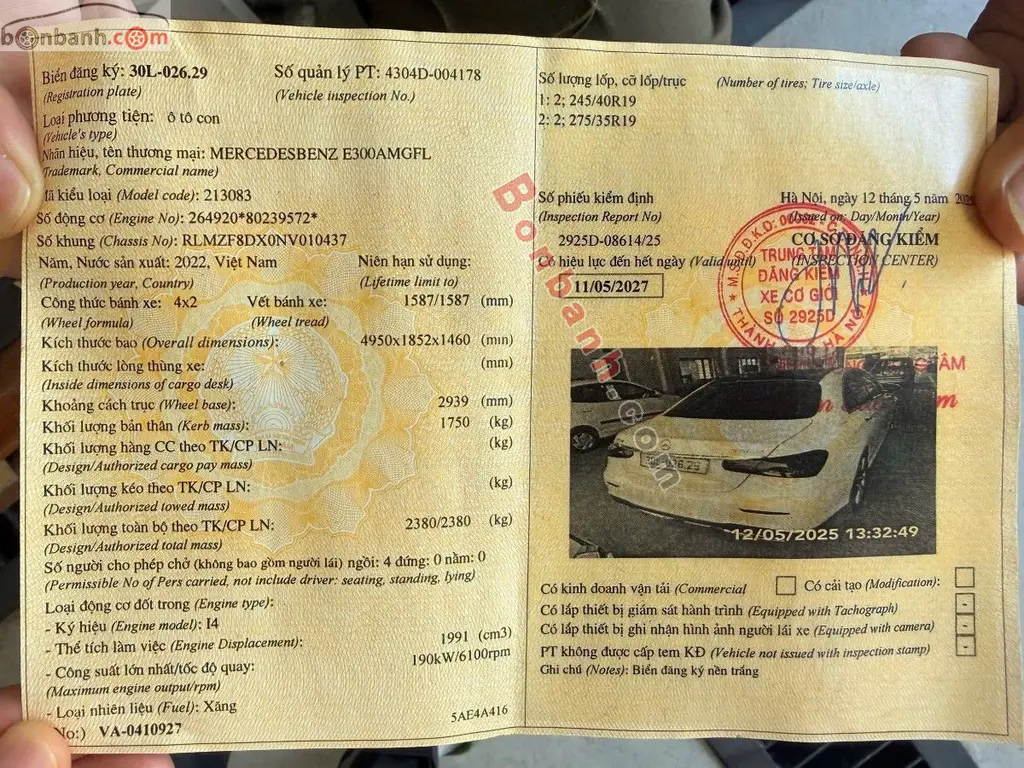 bonbanh.com
Biển đăng ký: 30L-026.29
Số quản lý PT: 4304D-004178
(Registration plate)
(Vehicle inspection No.)
Loại phương tiện: ô tô con
(Vehicle's type)
Nhãn hiệu, tên thương mại: MERCEDESBENZ E300AMGFL
(Trademark, Commercial name)
Mã kiểu loại (Model code): 213083
Số động cơ (Engine No): 264920*80239572*
Số khung (Chassis No): RLMZF8DX0NV010437
Năm, Nước sản xuất: 2022, Việt Nam
Niên hạn sử dụng:
(Production year, Country)
(Lifetime limit to)
Công thức bánh xe: 4x2
Vết bánh xe: 1587/1587 (mm)
(Wheel formula)
(Wheel tread)
Kích thước bao (Overall dimensions): 4950x1852x1460 (mm)
Kích thước lòng thùng xe: (mm)
(Inside dimensions of cargo desk)
Khoảng cách trục (Wheel base): 2939 (mm)
Khối lượng bản thân (Kerb mass): 1750 (kg)
Khối lượng hàng CC theo TK/CP LN: (kg)
(Design/Authorized cargo pay mass)
Khối lượng kéo theo TK/CP LN: (kg)
(Design/Authorized towed mass)
Khối lượng toàn bộ theo TK/CP LN: 2380/2380 (kg)
(Design/Authorized total mass)
Số người cho phép chở (không bao gồm người lái) ngồi: 4 đứng: 0 nằm: 0
(Permissible No of Pers carried, not include driver: seating, standing, lying)
Loại động cơ đốt trong (Engine type):
- Ký hiệu (Engine model): I4
- Thể tích làm việc (Engine Displacement): 1991 (cm3)
- Công suất lớn nhất/tốc độ quay: 190kW/6100rpm
(Maximum engine output/rpm)
- Loại nhiên liệu (Fuel): Xăng
No:) VA-0410927
5AE4A416
Số lượng lốp, cỡ lốp/trục (Number of tires; Tire size/axle)
1: 2; 245/40R19
2: 2; 275/35R19
Số phiếu kiểm định
Hà Nội, ngày 12 tháng 5 năm
(Inspection Report No)
(Issued on: Day/Month/Year)
2925D-08614/25
CƠ SỞ ĐĂNG KIỂM
Có hiệu lực đến hết ngày (Valid until)
(INSPECTION CENTER)
11/05/2027
TRUNG TÂM
ĐĂNG KIỂM
XE CƠ GIỚI
SỐ 2925D
THÀNH HÀ NỘI
TÂM
Bonbanh.com
12/05/2025 13:32:49
Có kinh doanh vận tải (Commercial
Có cải tạo (Modification):
Có lắp thiết bị giám sát hành trình (Equipped with Tachograph) -
Có lắp thiết bị ghi nhận hình ảnh người lái xe (Equipped with camera) -
PT không được cấp tem KĐ (Vehicle not issued with inspection stamp) -
Ghi chú (Notes): Biển đăng ký nền trắng